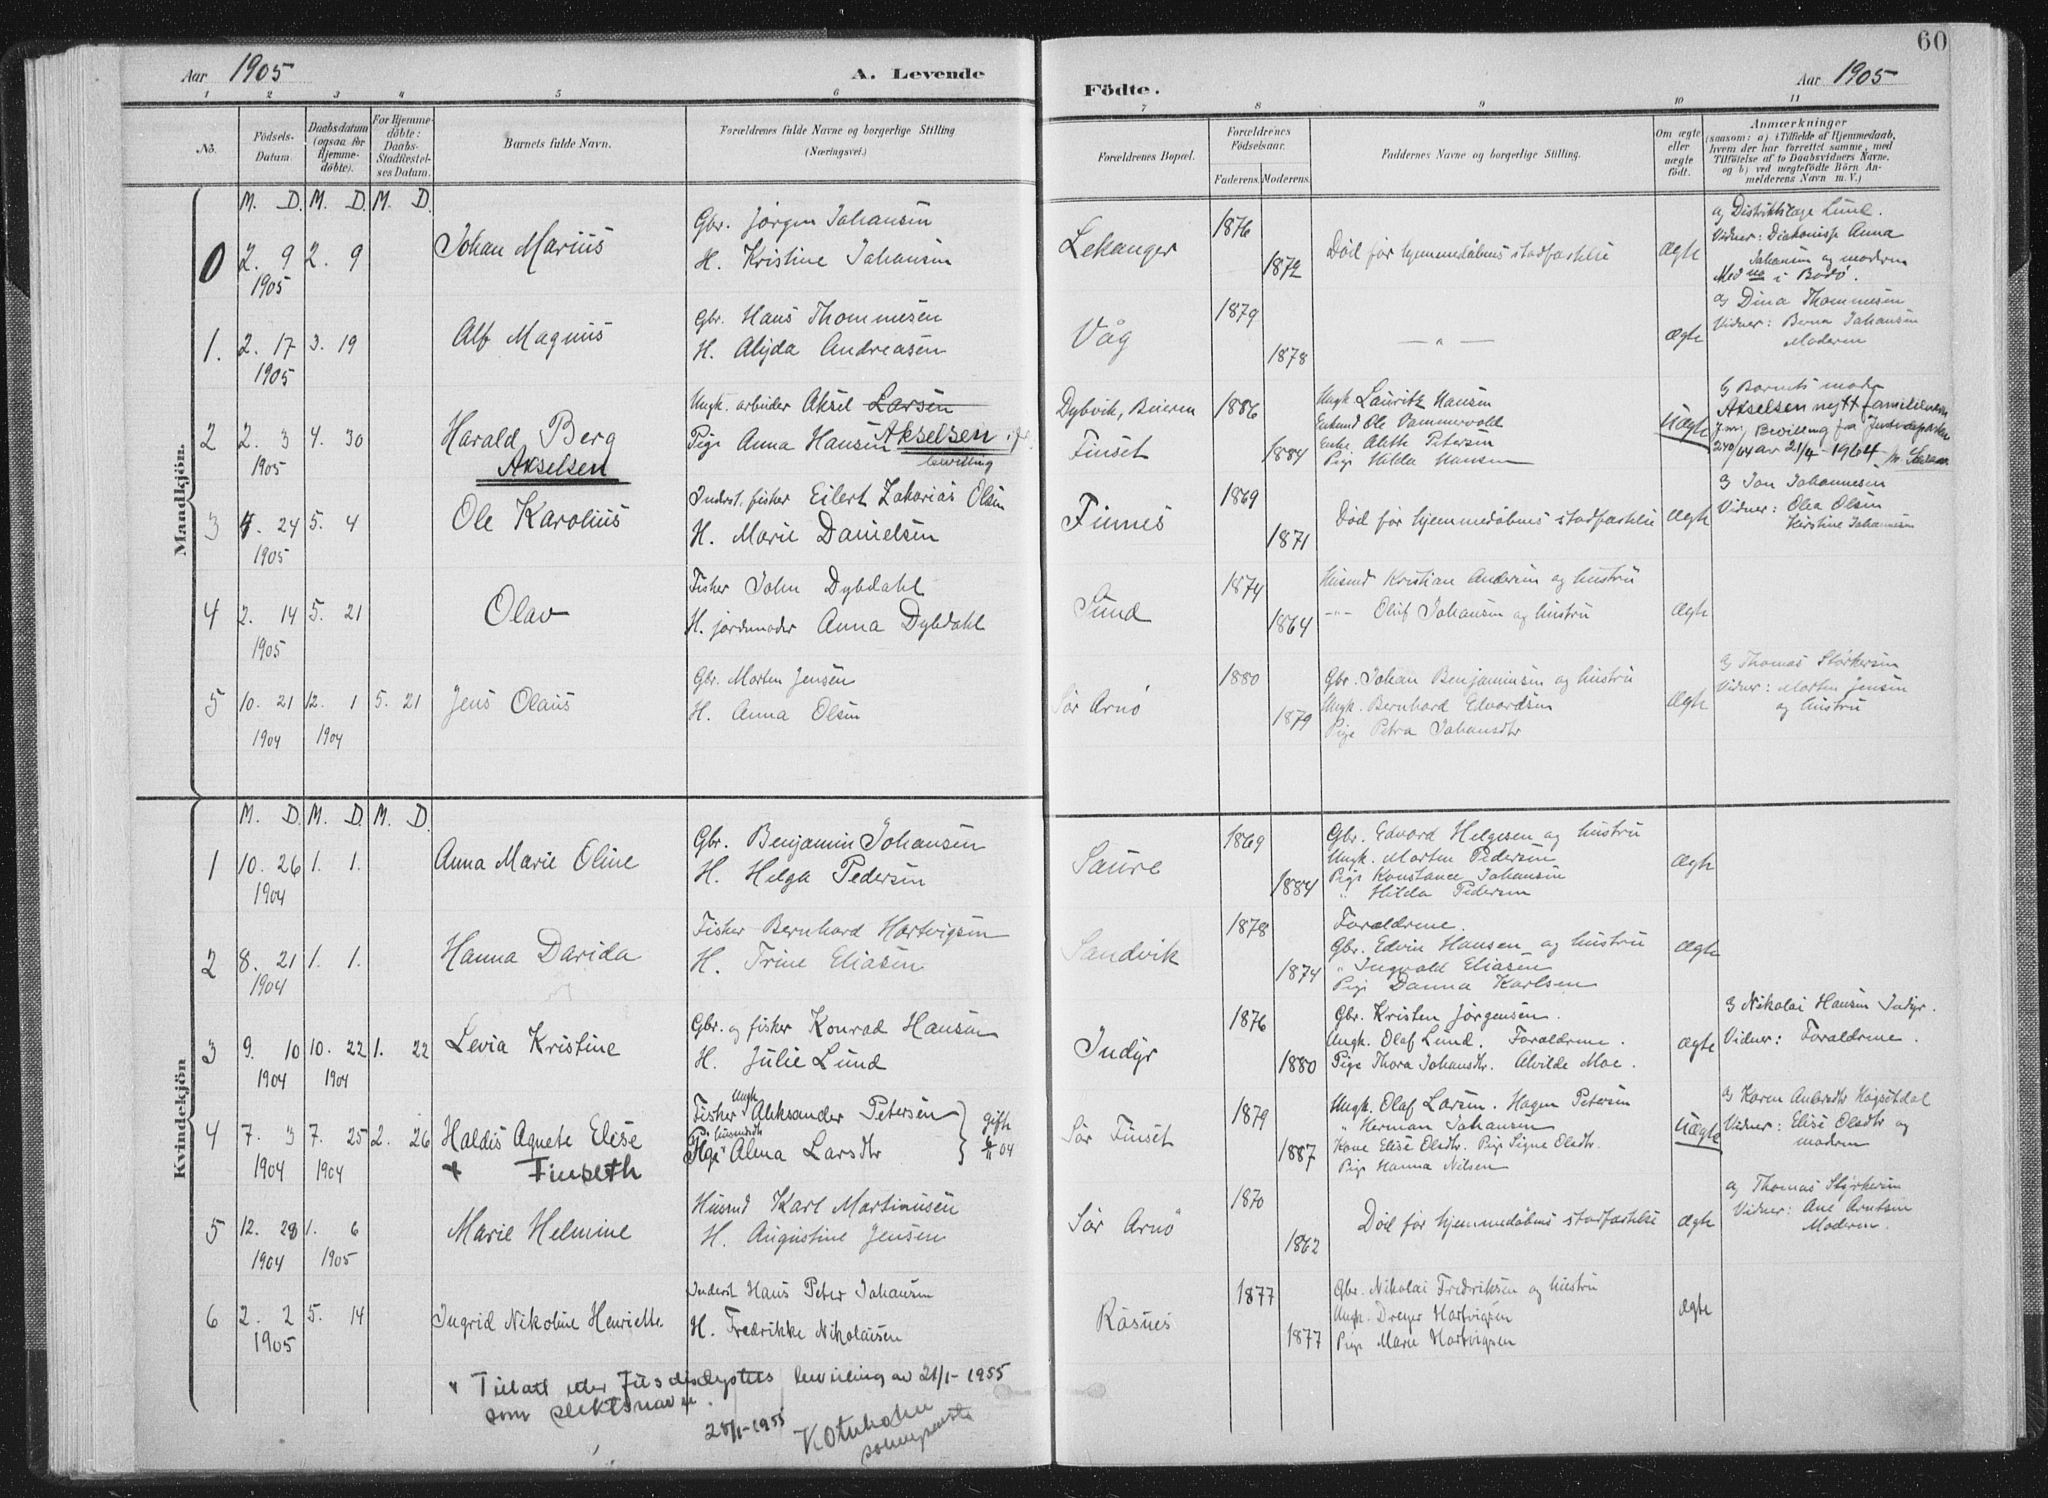 60
Aar 1905
A. Levende
Födte.
Aar 1905
1 2 3 4 5 6 7 8 9 10 11
No.
Födsels-Datum.
Daabsdatum (ogsaa for Hjemmedöbte).
For Hjemmedöbte: Daabs-Stadfæstelses Datum.
Barnets fulde Navn.
Forældrenes fulde Navne og borgerlige Stilling
(Næringsvei.)
Forældrenes Bopæl.
Forældrenes Födselsaar.
Faderens. Moderens.
Faddernes Navne og borgerlige Stilling.
Om ægte eller uægte födt.
Anmærkninger
(saasom: a) i Tilfælde af Hjemmedaab,
hvem der har forrettet samme, med
Tilföielse af to Daabsvidners Navne,
og b) ved uægtefödte Börn Anmelderens Navn m. V.)
Mandkjön.
M. D. M. D. M. D.
0 2. 9 2. 9
1905
Johan Marius
Gbr. Jørgen Johansen
H. Kristine Johansen
Lekanger
1876
1872
Död før hjemmedåbens stadfæstelse
ægte
a) Distriktslæge Lund.
Vidner: Diakonisse Anna
Johansen og moderen
Med no i Bodø.
1. 2. 17 3. 19
1905
Alf Magnus
Gbr. Hans Thommesen
H. Alida Andreasen
Våg
1879
1878
— " —
ægte
a) Dina Thommesen
Vidner: Berna Johansen
Moderen
2 2. 3 4. 30
1905
Harald Berg
Akselsen
Ungk. arbeider Aksel Larsen
Pige Anna Hansen Akselsen
bevilling
Dybvik, Beieren
Finset
1886
1884
Ungk. Lauritz Hansen
Enkemd Ole Vammervold
Enke Aleth Petersen
Pige Hilda Hansen
Uægte
b) Barnets moder
Akselsen nytt familienavn
J.nr. Bevilling fra Justisdeparte
240/64 av 21/4-1964
3 4. 24 5. 4
1905
Ole Karolius
Inderst. fisker Eilert Zakarias Olsen
H. Marie Danielsen
Finnes
1869
1871
Död før hjemmedåbens stadfæstelse
ægte
a) Jon Johannesen
Vidner: Olea Olsen
Kirstine Johannesen
4 2. 14 5. 21
1905
Olav
Fisker John Dybdahl
H. jordmoder Anna Dybdahl
Sund
1874
1864
Husmd Kristian Andersen og hustru
-"- Oluf Johansen og hustru
ægte
5 10. 21 12. 1 5. 21
1904 1904
Jens Olaus
Gbr. Morten Jensen
H. Anna Olsen
Sør Arnø
1880
1879
Gbr. Johan Benjaminsen og hustru
Ungk. Bernhard Edvardsen
Pige Petra Johansdtr
ægte
a) Thomas Størkersen
Vidner: Morten Jensen
og hustru
Kvindekjön
M. D. M. D. M. D.
1 10. 26 1. 1.
1904
Anna Marie Oline
Gbr. Benjamin Johansen
H. Helga Pedersen
Saure
1869
1884
Gbr. Edvard Helgesen og hustru
Ungk. Morten Pedersen
Pige Konstance Johansen
" Hilda Pedersen
ægte
2 8. 21 1. 1.
1904
Hanna Darida
Fisker Bernhard Hartvigsen
H. Trine Eliasen
Sandvik
1878
1874
Forældrene.
Gbr. Edvin Hansen og hustru
" Ingvald Eliasen
Pige Danna Karlsen
ægte
3 9. 10 10. 22 1. 22
1904 1904
Levia Kristine
Gbr. og fisker Konrad Hansen
H. Julie Lund
Indyr
1876
1880
Gbr. Kristen Jørgensen.
Ungk. Olaf Lund. Forældrene.
Pige Thora Johansdtr. Alvilde Moe.
ægte
a) Nikolai Hansen Indyr.
Vidner: Forældrene.
4 7. 3 7. 25 2. 26
1904 1904
Haldis Agnete Elise
× Finseth
Ungk.
Fisker Aleksander Petersen
Pige Alma Larsdtr
gift
04
Sør Finset
1879
1887
Ungk. Olaf Larsen. Hagen Petersen
" Herman Johansen
Kone Elise Olsdtr. Pige Signe Olsdtr.
Pige Hanna Nilsen
Uægte
a) Karen Andrsdtr Hagsetdal
Vidner: Elise Olsdtr og
moderen
5 12. 28 1. 6
1904 1905
Marie Helmine
Husmd Karl Martinusen
H. Augustine Jensen
Sør Arnø
1870
1862
Död før hjemmedåbens stadfæstelse
ægte
a) Thomas Styrkersen
Vidner: Ane Arntsen
Moderen.
6 2. 2 5. 14
1905
Ingrid Nikoline Henriette
Inderst Hans Peter Johansen
H. Fredrikke Nikolaisen
Råsnes
1877
1877
Gbr. Nikolai Fredriksen og hustru
Ungk. Dreyer Hartvigsen
Pige Marie Hartvigsen
ægte
× Tillatt etter Jusdisdeptets bevilling av 21/1-1955
som slektsnavn.
25/1-1955
sokneprest